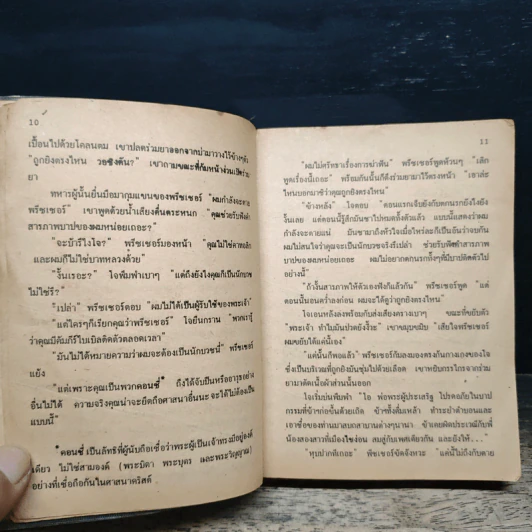 10
เปื้อนไปด้วยโคลนตม เขาปลดร่วมยาออกจากบ่ามาวางไว้ข้างๆตัว
"ถูกยิงตรงไหน วอชิงตัน?" เขาถามขณะที่ก้มหน้าง่วนเปิดร่วม
ยา
ทหารผู้นั้นยื่นมือมากุมแขนของพรีชเชอร์ "ผมกำลังจะตาย
พรีชเชอร์" เขาพูดด้วยน้ำเสียงตื่นตระหนก "คุณช่วยรับฟังคำ
สารภาพบาปของผมหน่อยเถอะ?"
"จะบ้ารึไงโจ?" พรีชเชอร์มองหน้า "คุณไม่ใช่คาทอลิก
และผมก็ไม่ใช่บาทหลวงด้วย"
"งั้นเรอะ?" โจพึมพำเบาๆ "แต่ถึงยังไงคุณก็เป็นนักบวช
ไม่ใช่รึ?"
"เปล่า" พรีชเชอร์ตอบ "ผมไม่ได้เป็นผู้รับใช้ของพระเจ้า"
"แต่ใครๆก็เรียกคุณว่าพรีชเชอร์" โจยืนกราน "พวกเรารู้
ว่าคุณมีคัมภีร์ไบเบิลติดตัวตลอดเวลา"
"มันไม่ได้หมายความว่าผมจะต้องเป็นนักบวชนี่" พรีชเชอร์
แย้ง
"แต่เพราะคุณเป็นพวกดอนซี่* ถึงได้จับปืนหรืออาวุธอย่าง
อื่นไม่ได้ ความจริงคุณน่าจะยึดถือศาสนาอื่นนะ จะได้ไม่ต้องเป็น
แบบนี้"
*ดอนซี่ เป็นลัทธิที่ผู้นับถือเชื่อว่าพระผู้เป็นเจ้าทรงมีอยู่องค์
เดียว ไม่ใช่สามองค์ (พระบิดา พระบุตร และพระวิญญาณ)
อย่างที่เชื่อถือกันในศาสนาคริสต์
11
"ผมไม่ศรัทธาเรื่องการฆ่าฟัน" พรีชเชอร์พูดห้วนๆ "เลิก
พูดเรื่องนี้เถอะ" พร้อมกันนั้นก็ดึงร่วมยามาไว้ตรงหน้า "เอาล่ะ
ไหนบอกมาซิว่าคุณถูกยิงตรงไหน"
"ข้างหลัง" โจตอบ "ตอนแรกเจ็บยังกับตกนรกยังไงยัง
งั้นเลย แต่ตอนนี้รู้สึกมันชาไปหมดทั้งตัวแล้ว แบบนี้แสดงว่าผม
กำลังจะตายแน่ มันชามาถึงหัวใจเมื่อไหร่ละก็เป็นอันว่าจบกัน
ผมไม่สนใจว่าคุณจะเป็นนักบวชจริงรึเปล่า ช่วยรับฟังคำสารภาพ
บาปของผมหน่อยเถอะ ผมไม่อยากตกนรกทั้งๆที่มีบาปติดตัวไป
อย่างนี้"
"ถ้างั้นสารภาพให้ตัวเองฟังก็แล้วกัน" พรีชเชอร์พูด "แต่
ตอนนี้นอนคว่ำลงก่อน ผมจะได้ดูว่าถูกยิงตรงไหน"
โจเอนหลังลงพร้อมกับส่งเสียงครางเบาๆ ขณะที่ขยับตัว
"พระเจ้า ทำไมมันปวดยังงี้วะ" เขาขมุบขมิบ "เสียใจพรีชเชอร์
ผมขยับได้แค่นี้เอง"
"แค่นั้นก็พอแล้ว" พรีชเชอร์ก้มลงมองตรงก้นกางเกงของโจ
ซึ่งเป็นบริเวณที่ถูกยิงมันชุ่มไปด้วยเลือด เขาหยิบกรรไกรจากร่วม
ยามาตัดเนื้อผ้าส่วนนั้นออก
โจเริ่มบ่นพึมพำ "โอ พ่อพระผู้ประเสริฐ โปรดอภัยในบาป
กรรมที่ข้าฯก่อขึ้นด้วยเถิด
"หุบปากทีเถอะ" พรีชเชอร์ขัดจังหวะ "แค่นี้ไม่ถึงกับตาย